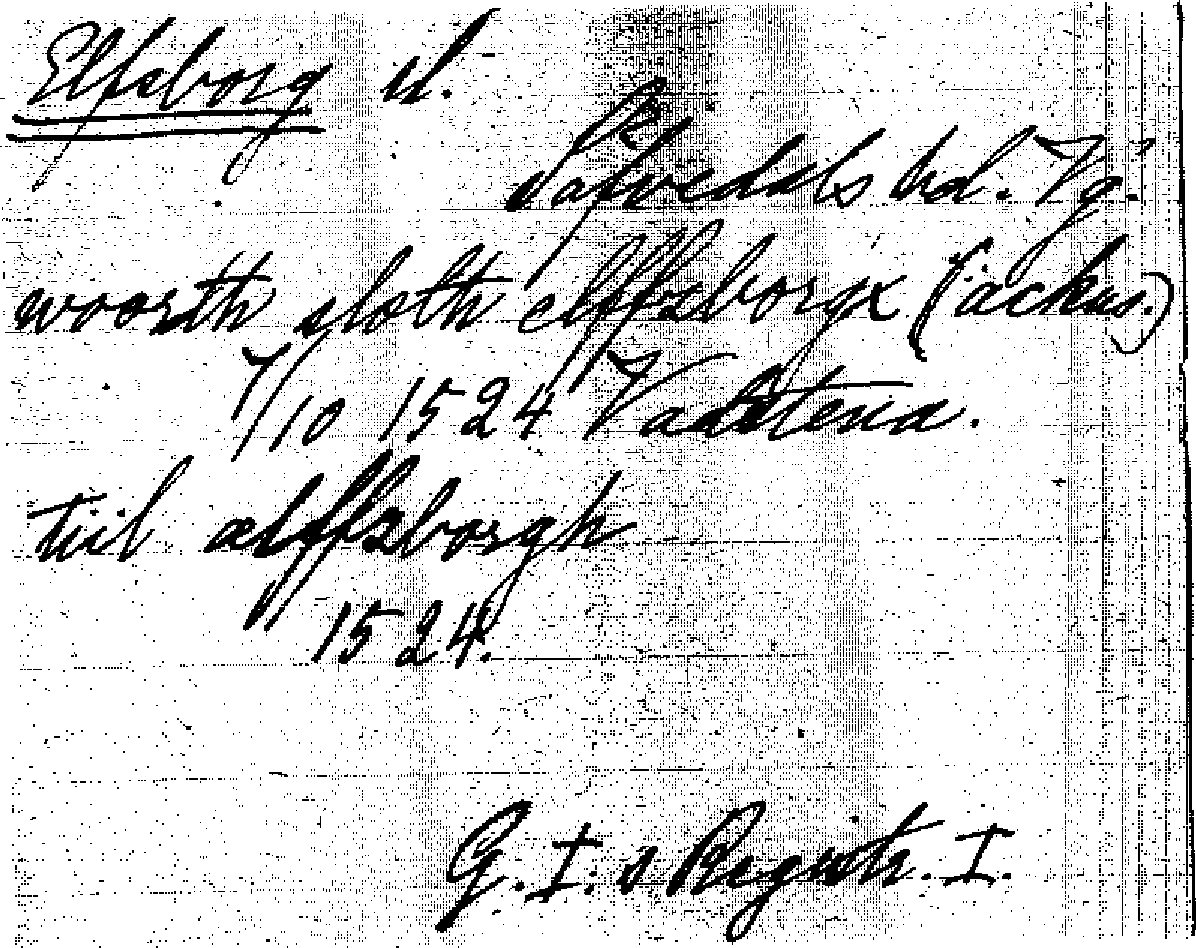 Elfsborg sl.
Sk
Säfvedals hd. Vg.
woorth sloth elffsborgx (ackus.)
7/10 1524 Vadstena.
tiil ælffzborgh
1524.
G. I:s Registr. I.